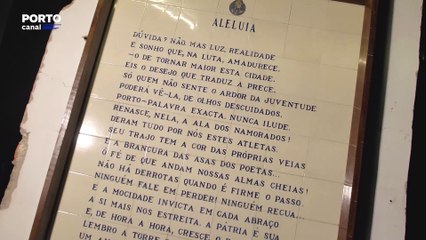 PORTO
canal
ALELUIA
DÚVIDA? NÃO. MAS LUZ, REALIDADE
E SONHO QUE, NA LUTA, AMADURECE.
-O DE TORNAR MAIOR ESTA CIDADE.
EIS O DESEJO QUE TRADUZ A PRECE.
SÓ QUEM NÃO SENTE O ARDOR DA JUVENTUDE
PODERÁ VÊ-LA, DE OLHOS DESCUIDADOS.
PORTO-PALAVRA EXACTA. NUNCA ILUDE.
RENASCE, NELA, A ALA DOS NAMORADOS!
DERAM TUDO POR NÓS ESTES ATLETAS.
SEU TRAJO TEM A COR DAS PRÓPRIAS VEIAS
E A BRANCURA DAS ASAS DOS POETAS...
Ó FÉ DE QUE ANDAM NOSSAS ALMAS CHEIAS!
NÃO HÁ DERROTAS QUANDO É FIRME O PASSO.
NINGUÉM FALE EM PERDER! NINGUÉM RECUA...
E A MOCIDADE INVICTA EM CADA ABRAÇO
A SI MAIS NOS ESTREITA. A PÁTRIA É SUA
E, DE HORA A HORA, CRESCE O
LEMBRO A TORRE